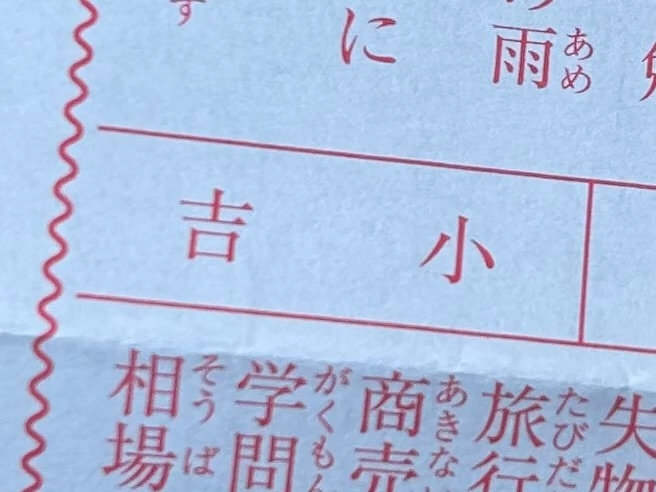 雨あめ
に
す
小吉
失物
旅行たびだ
商売あきな
学問がくもん
相場そうば